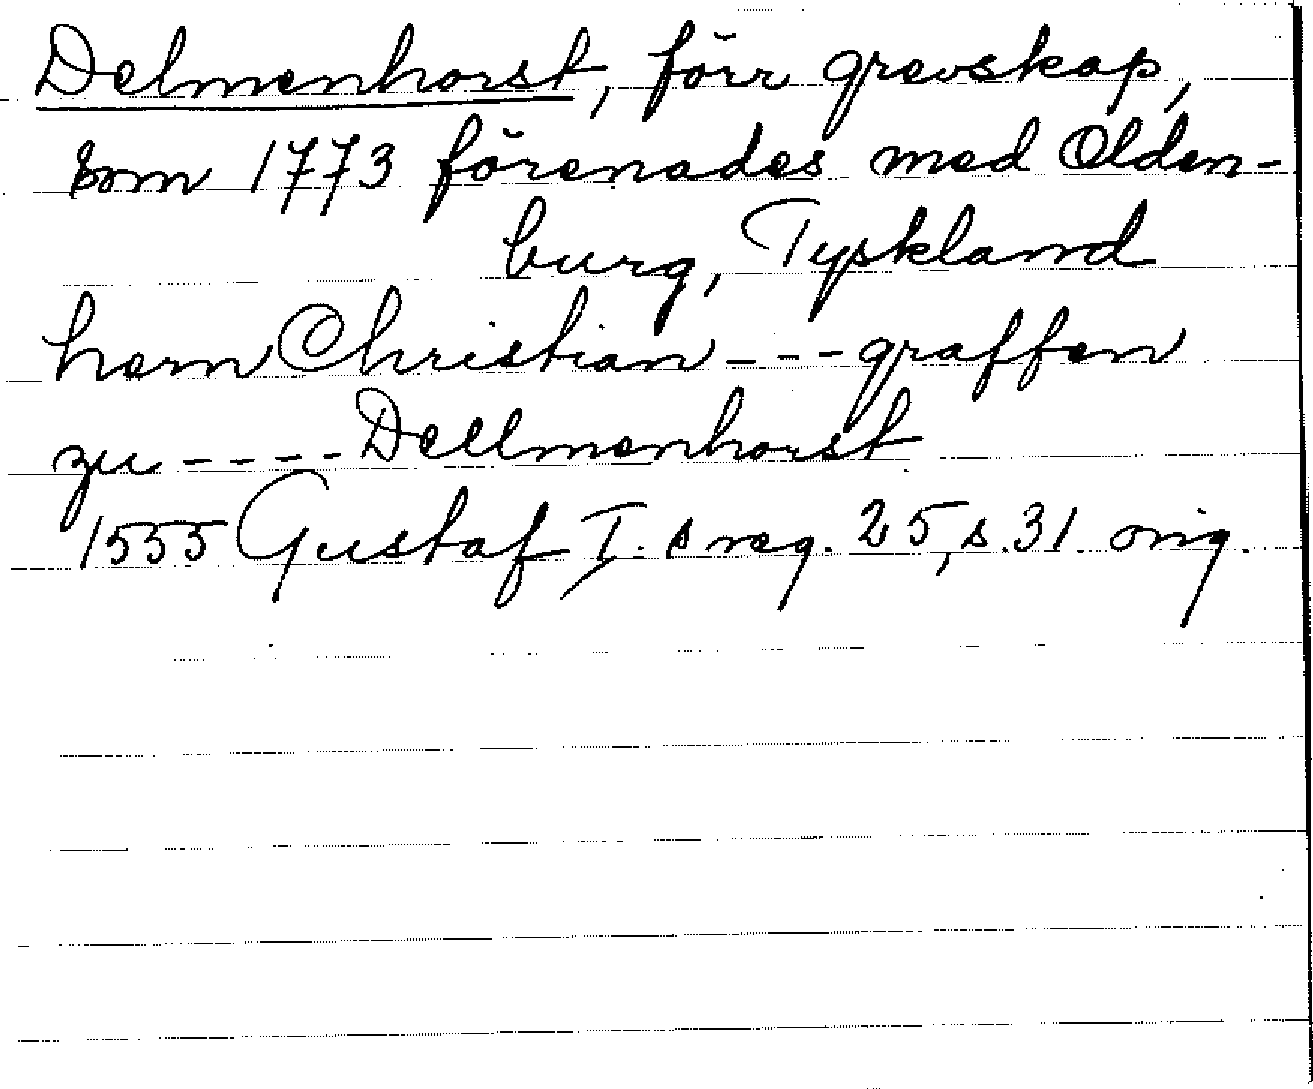 Delmenhorst, förr grevskap,
som 1773 förenades med Olden-
burg, Tyskland
hern Christian - - - graffen
zu - - - - Dellmenhorst
1555 Gustaf I. s reg. 25, s. 31 orig.